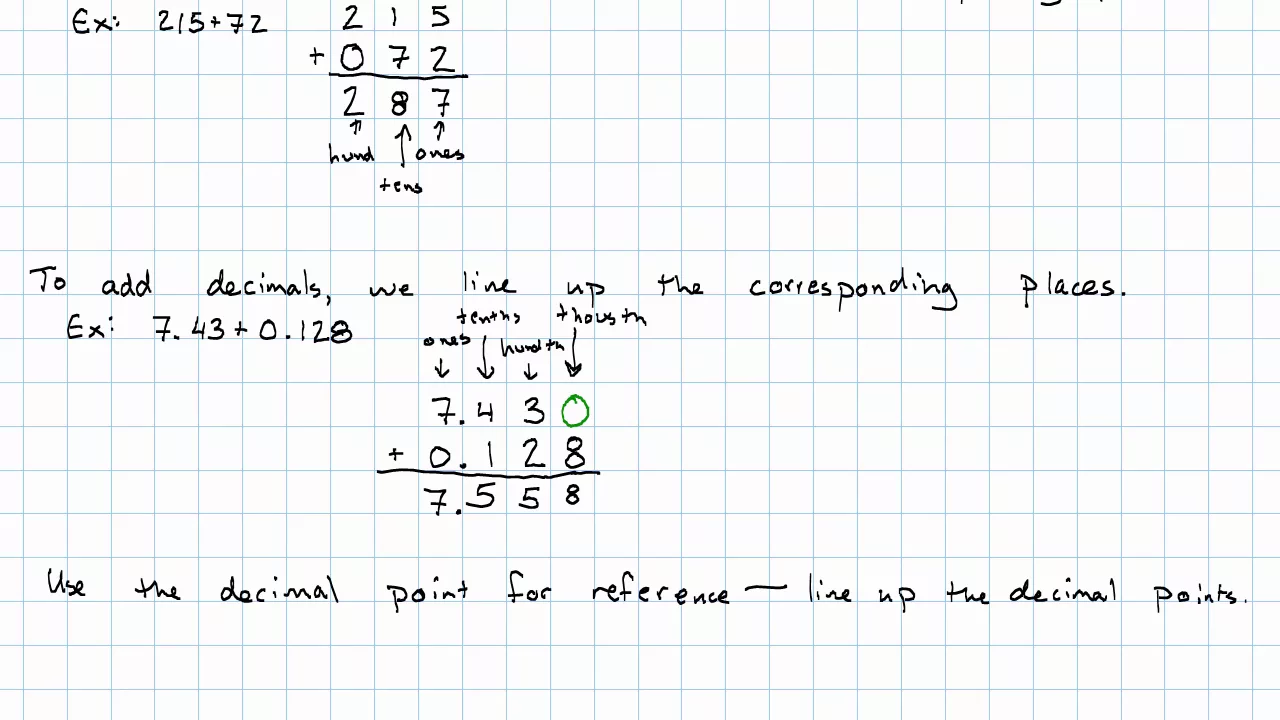 Ex: 215+72
2 1 5
+ 0 7 2
2 8 7
hund ones
tens
To add decimals, we line up the corresponding places.
Ex: 7.43+0.128
tenths thousth
ones hundth
7.4 3 0
+ 0.1 2 8
7.5 5 8
Use the decimal point for reference — line up the decimal points.